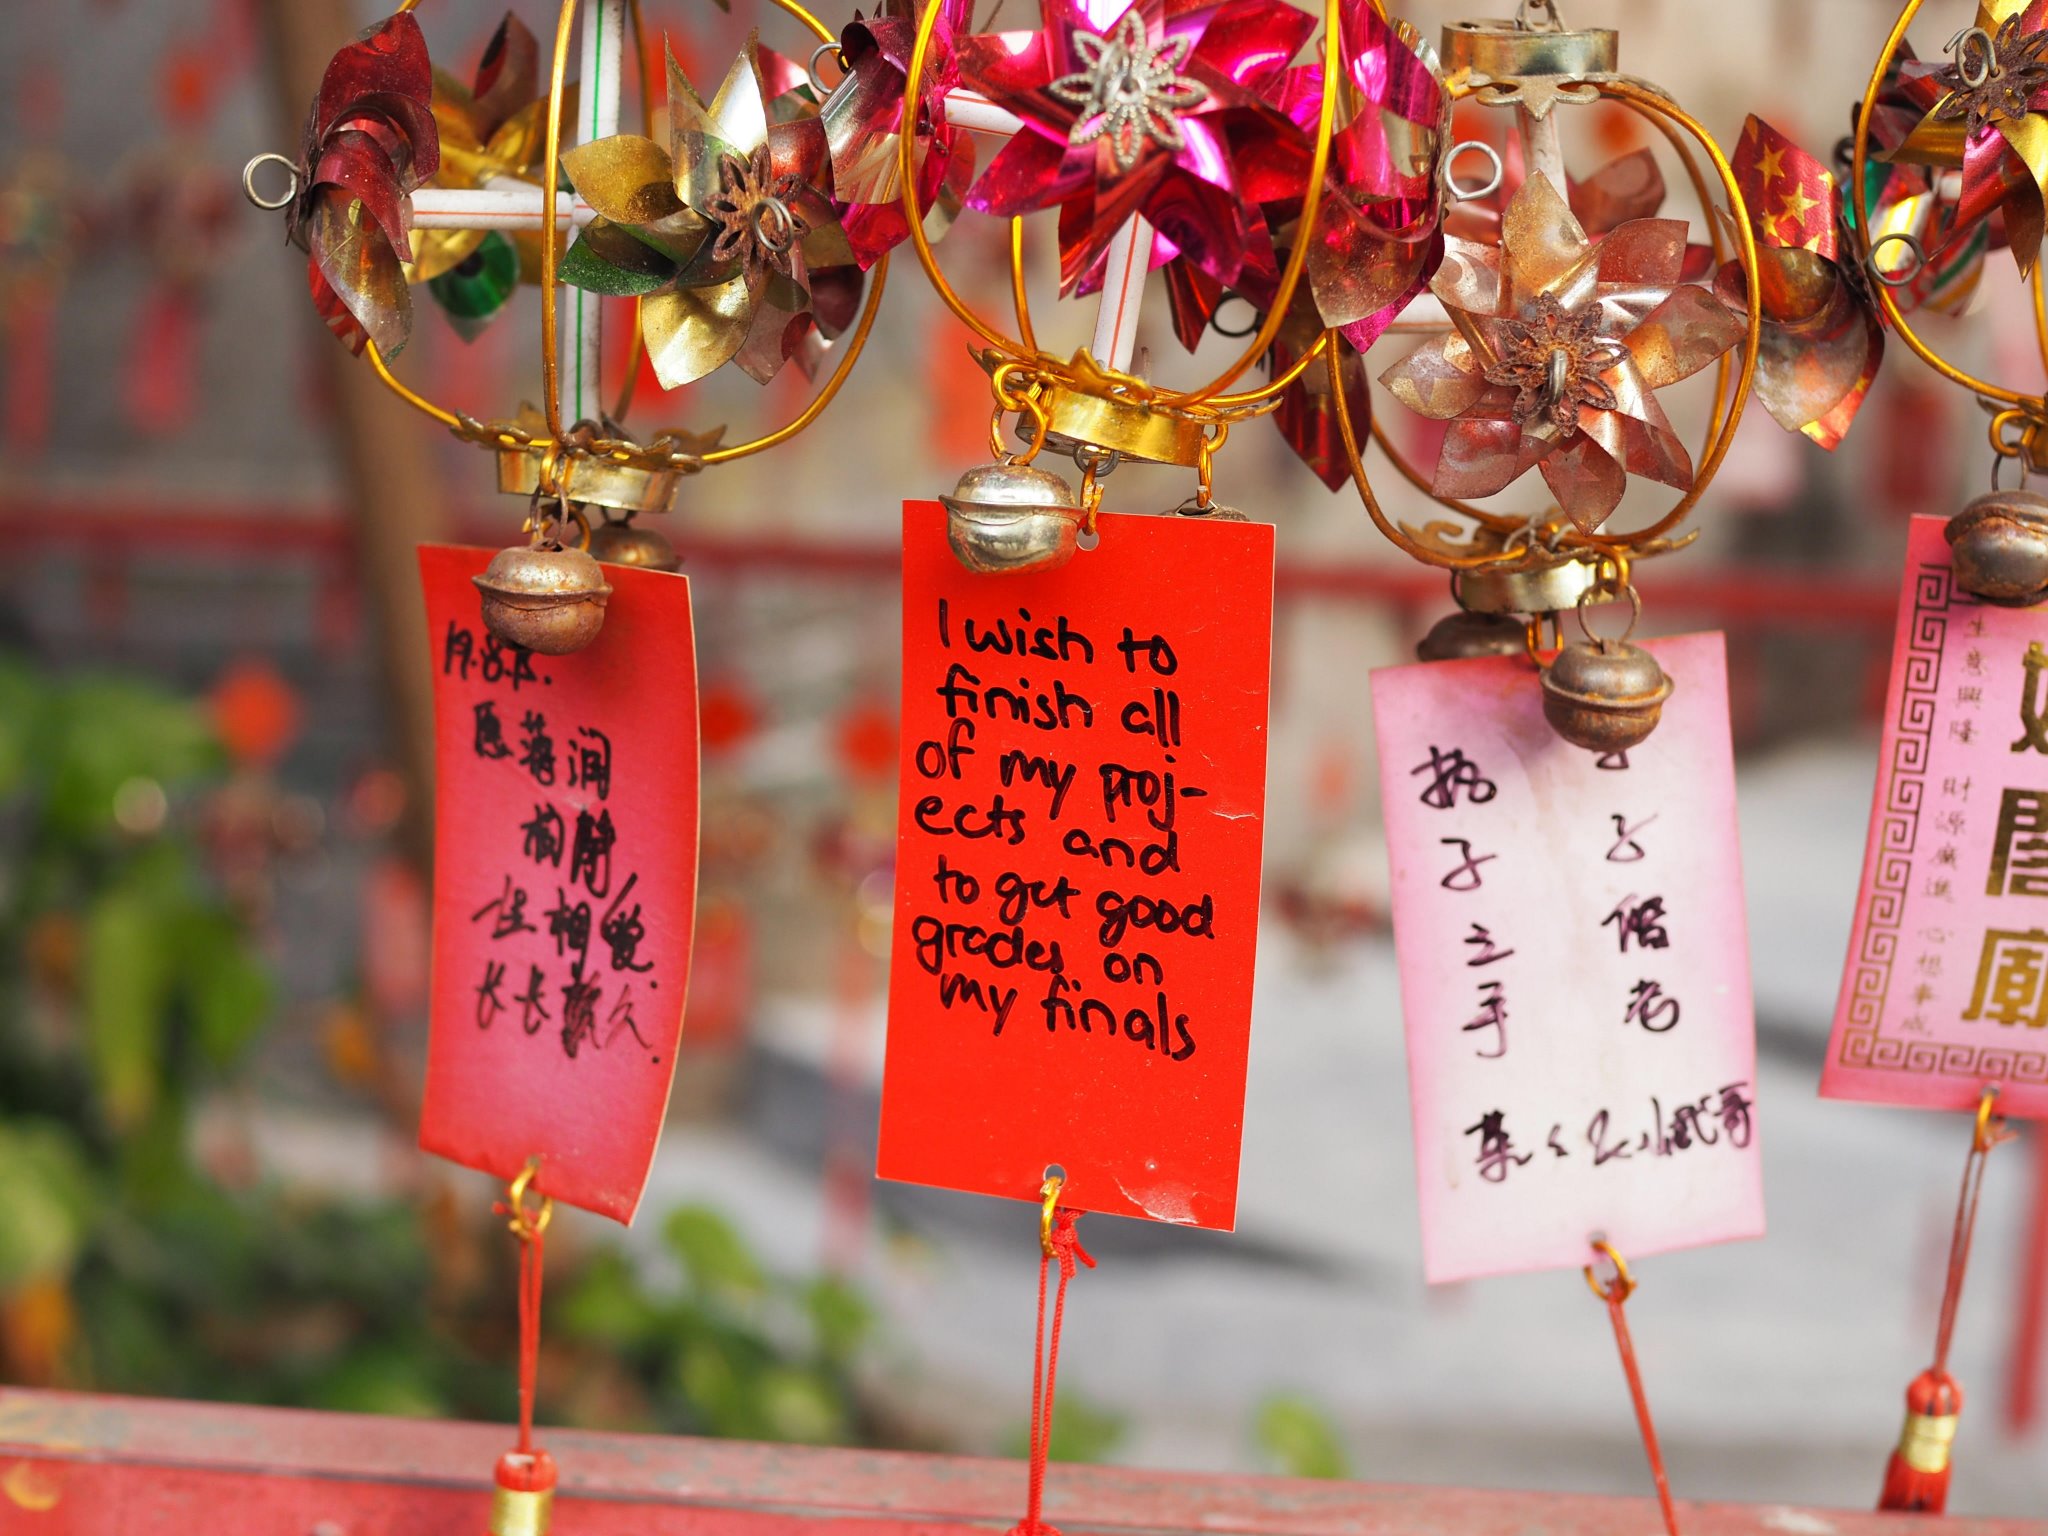 19.8.15.
愿蒋润
相爱
长长久久.
I wish to
finish all
of my proj-
ects and
to get good
grades on
my finals
执子之手
子偕老
生意興隆 財源廣進 心想事成
媽閣廟